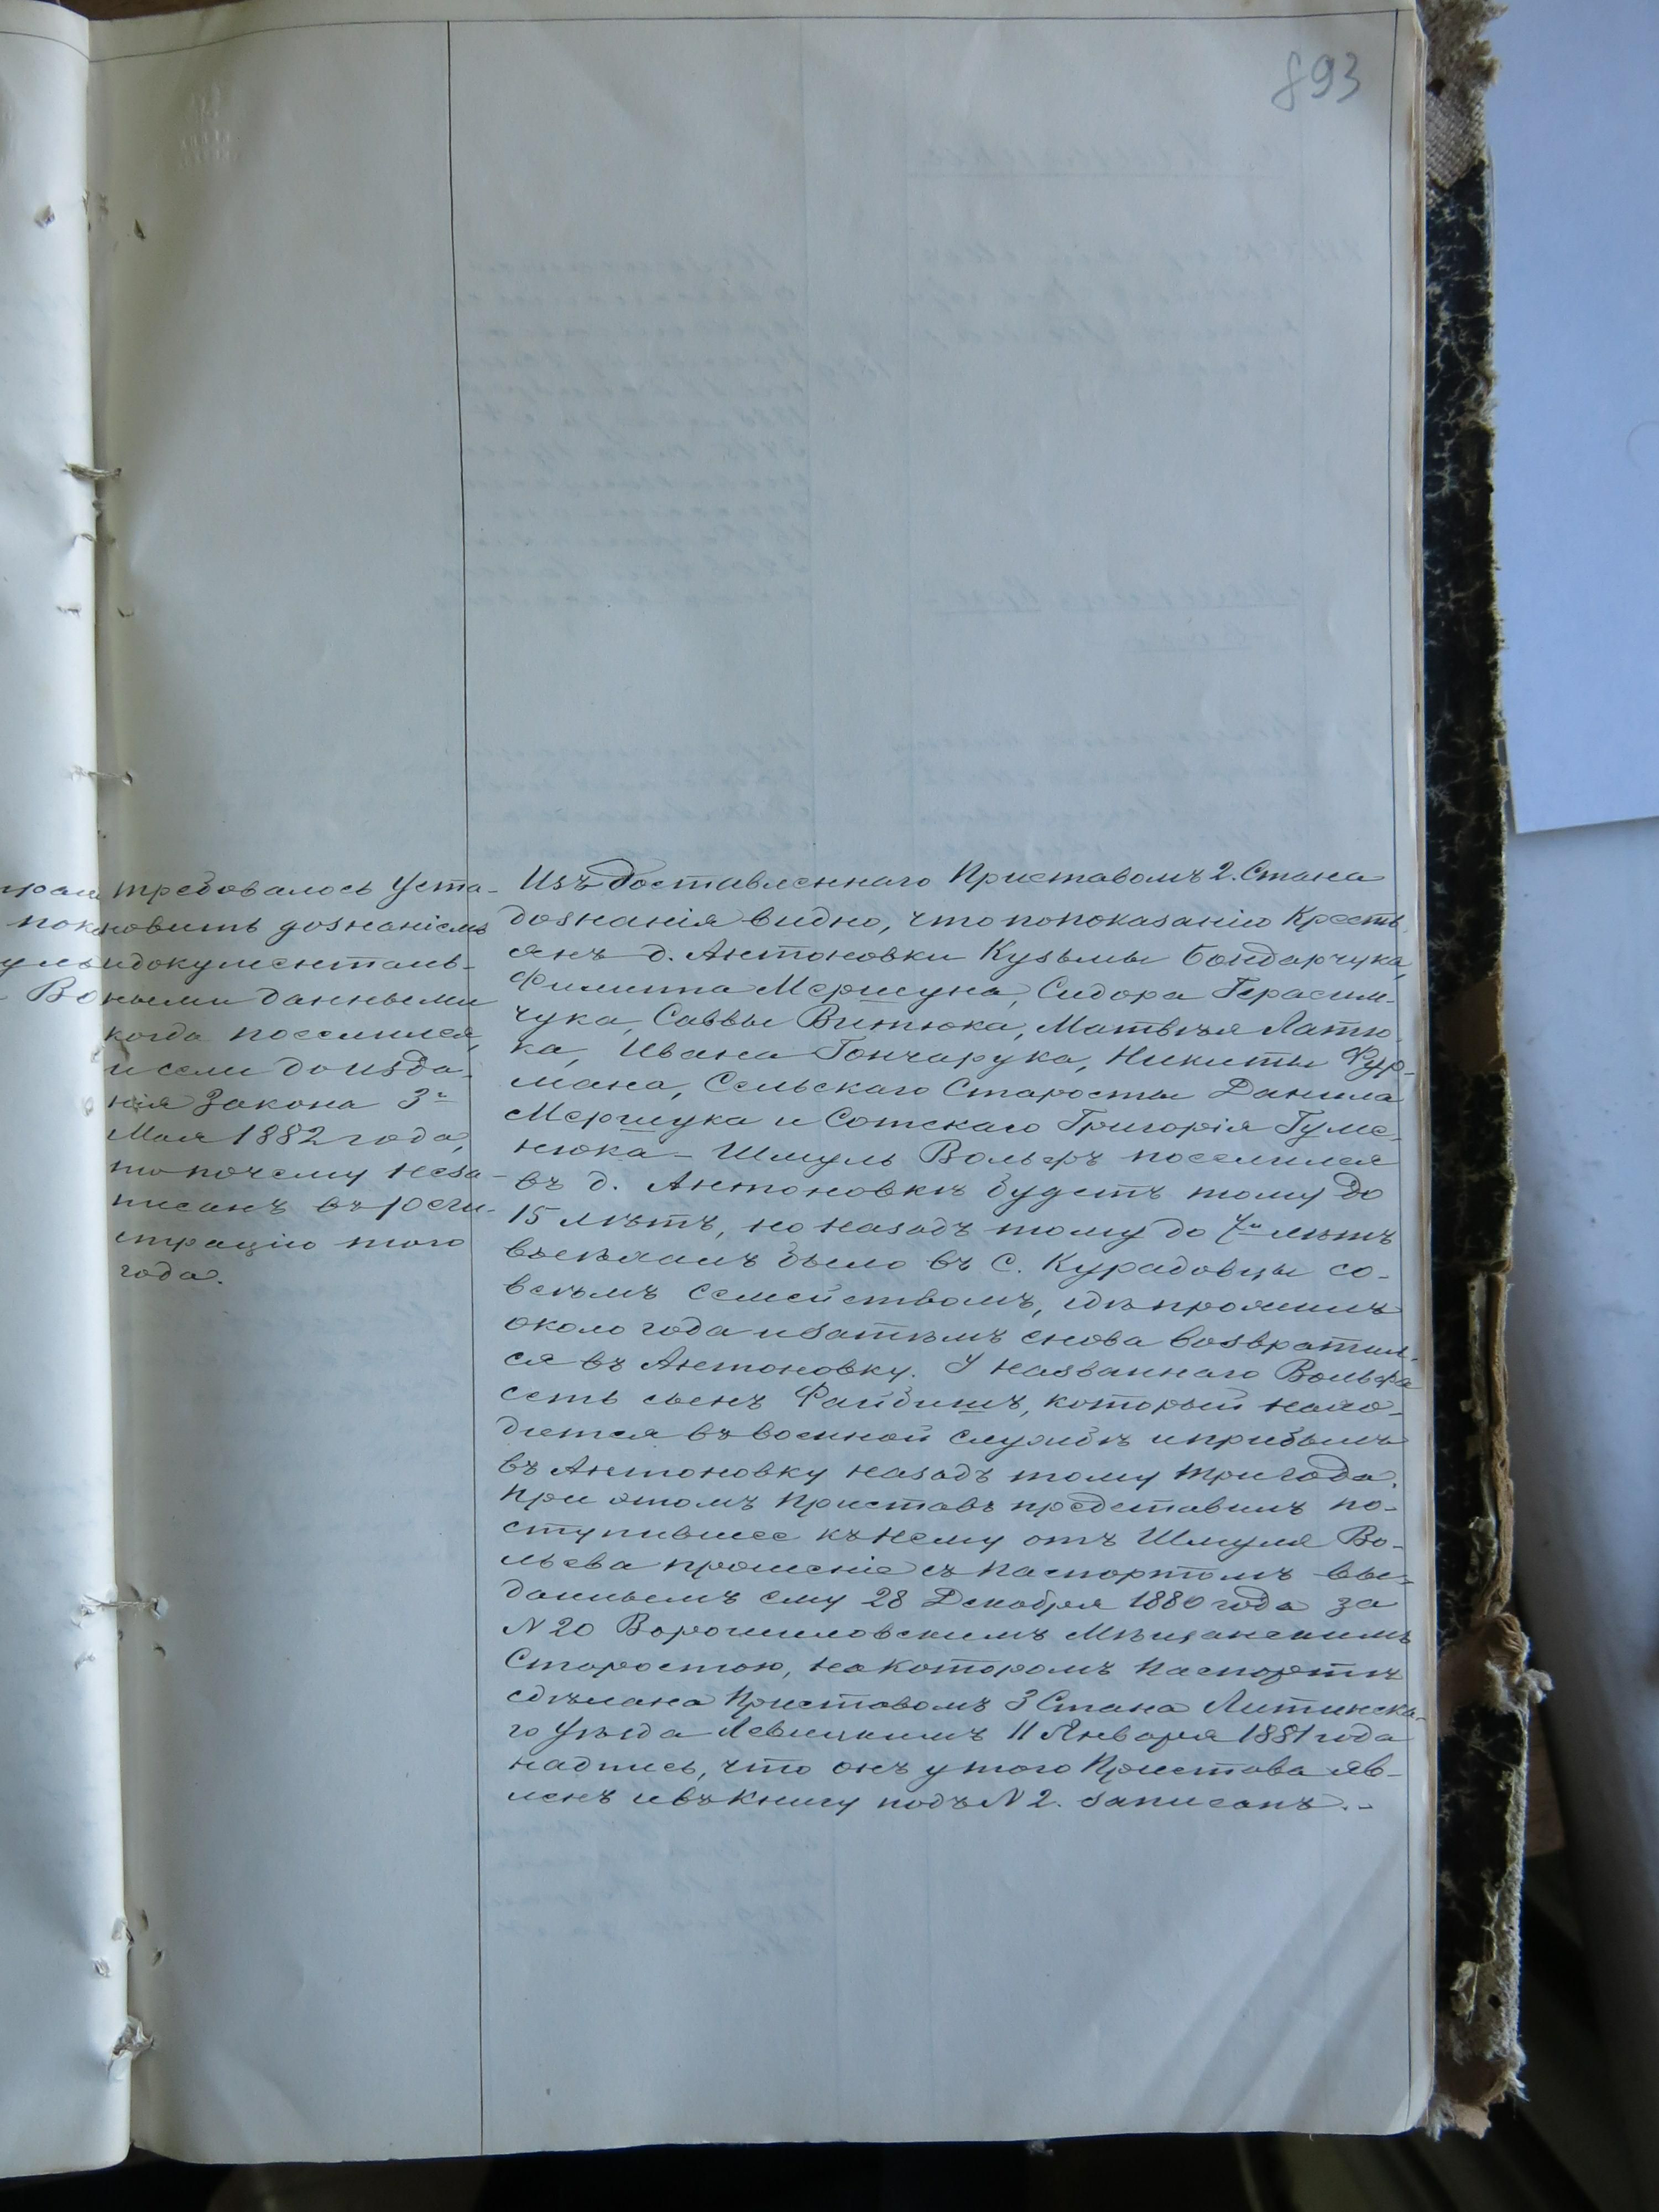 893
требовалось уста-
новить дознаніемъ
и документаль-
ными данными
когда поселился,
и если до изда-
нія Закона 3го
Мая 1882 года,
то почему неза-
писанъ въ реги-
страцію того
года.
Изъ доставленнаго Приставомъ 2. Стана
дознанія видно, что по показанію Кресть
янъ д. Антоновки Кузьмы Бондарчука,
Филиппа Мершуна, Сидора Герасим-
чука, Саввы Витюка, Матвѣя Латю-
ка, Ивана Гончарука, Никиты Фур-
мана, Сельскаго Старосты Данила
Мершука и Сотскаго Григорія Гуме-
нюка – Шмуль Вольфъ поселился
въ д. Антоновкѣ будетъ тому до
15 лѣтъ, но назадъ тому до 7и лѣтъ
выѣхалъ было въ с. Курадовцы со-
всѣмъ семействомъ, гдѣ прожилъ
около года и затѣмъ снова возвратил-
ся въ Антоновку. У названнаго Вольфа
есть сынъ Файбишъ, который нахо-
дится въ военной службѣ и прибылъ
въ Антоновку назадъ тому три года.
При этомъ Приставъ представилъ по-
ступившее къ нему отъ Шмуля Во-
льфа прошеніе съ паспортомъ вы-
даннымъ ему 28 Декабря 1880 года за
N 20 Ворошиловскимъ Мѣщанскимъ
Старостою, на которомъ паспортѣ
сдѣлана Приставомъ 3 Стана Литинска-
го Уѣзда Левицкимъ 11 Января 1881 года
надпись, что онъ у того Пристава яв-
ленъ и въ книгу подъ N 2. записанъ.-